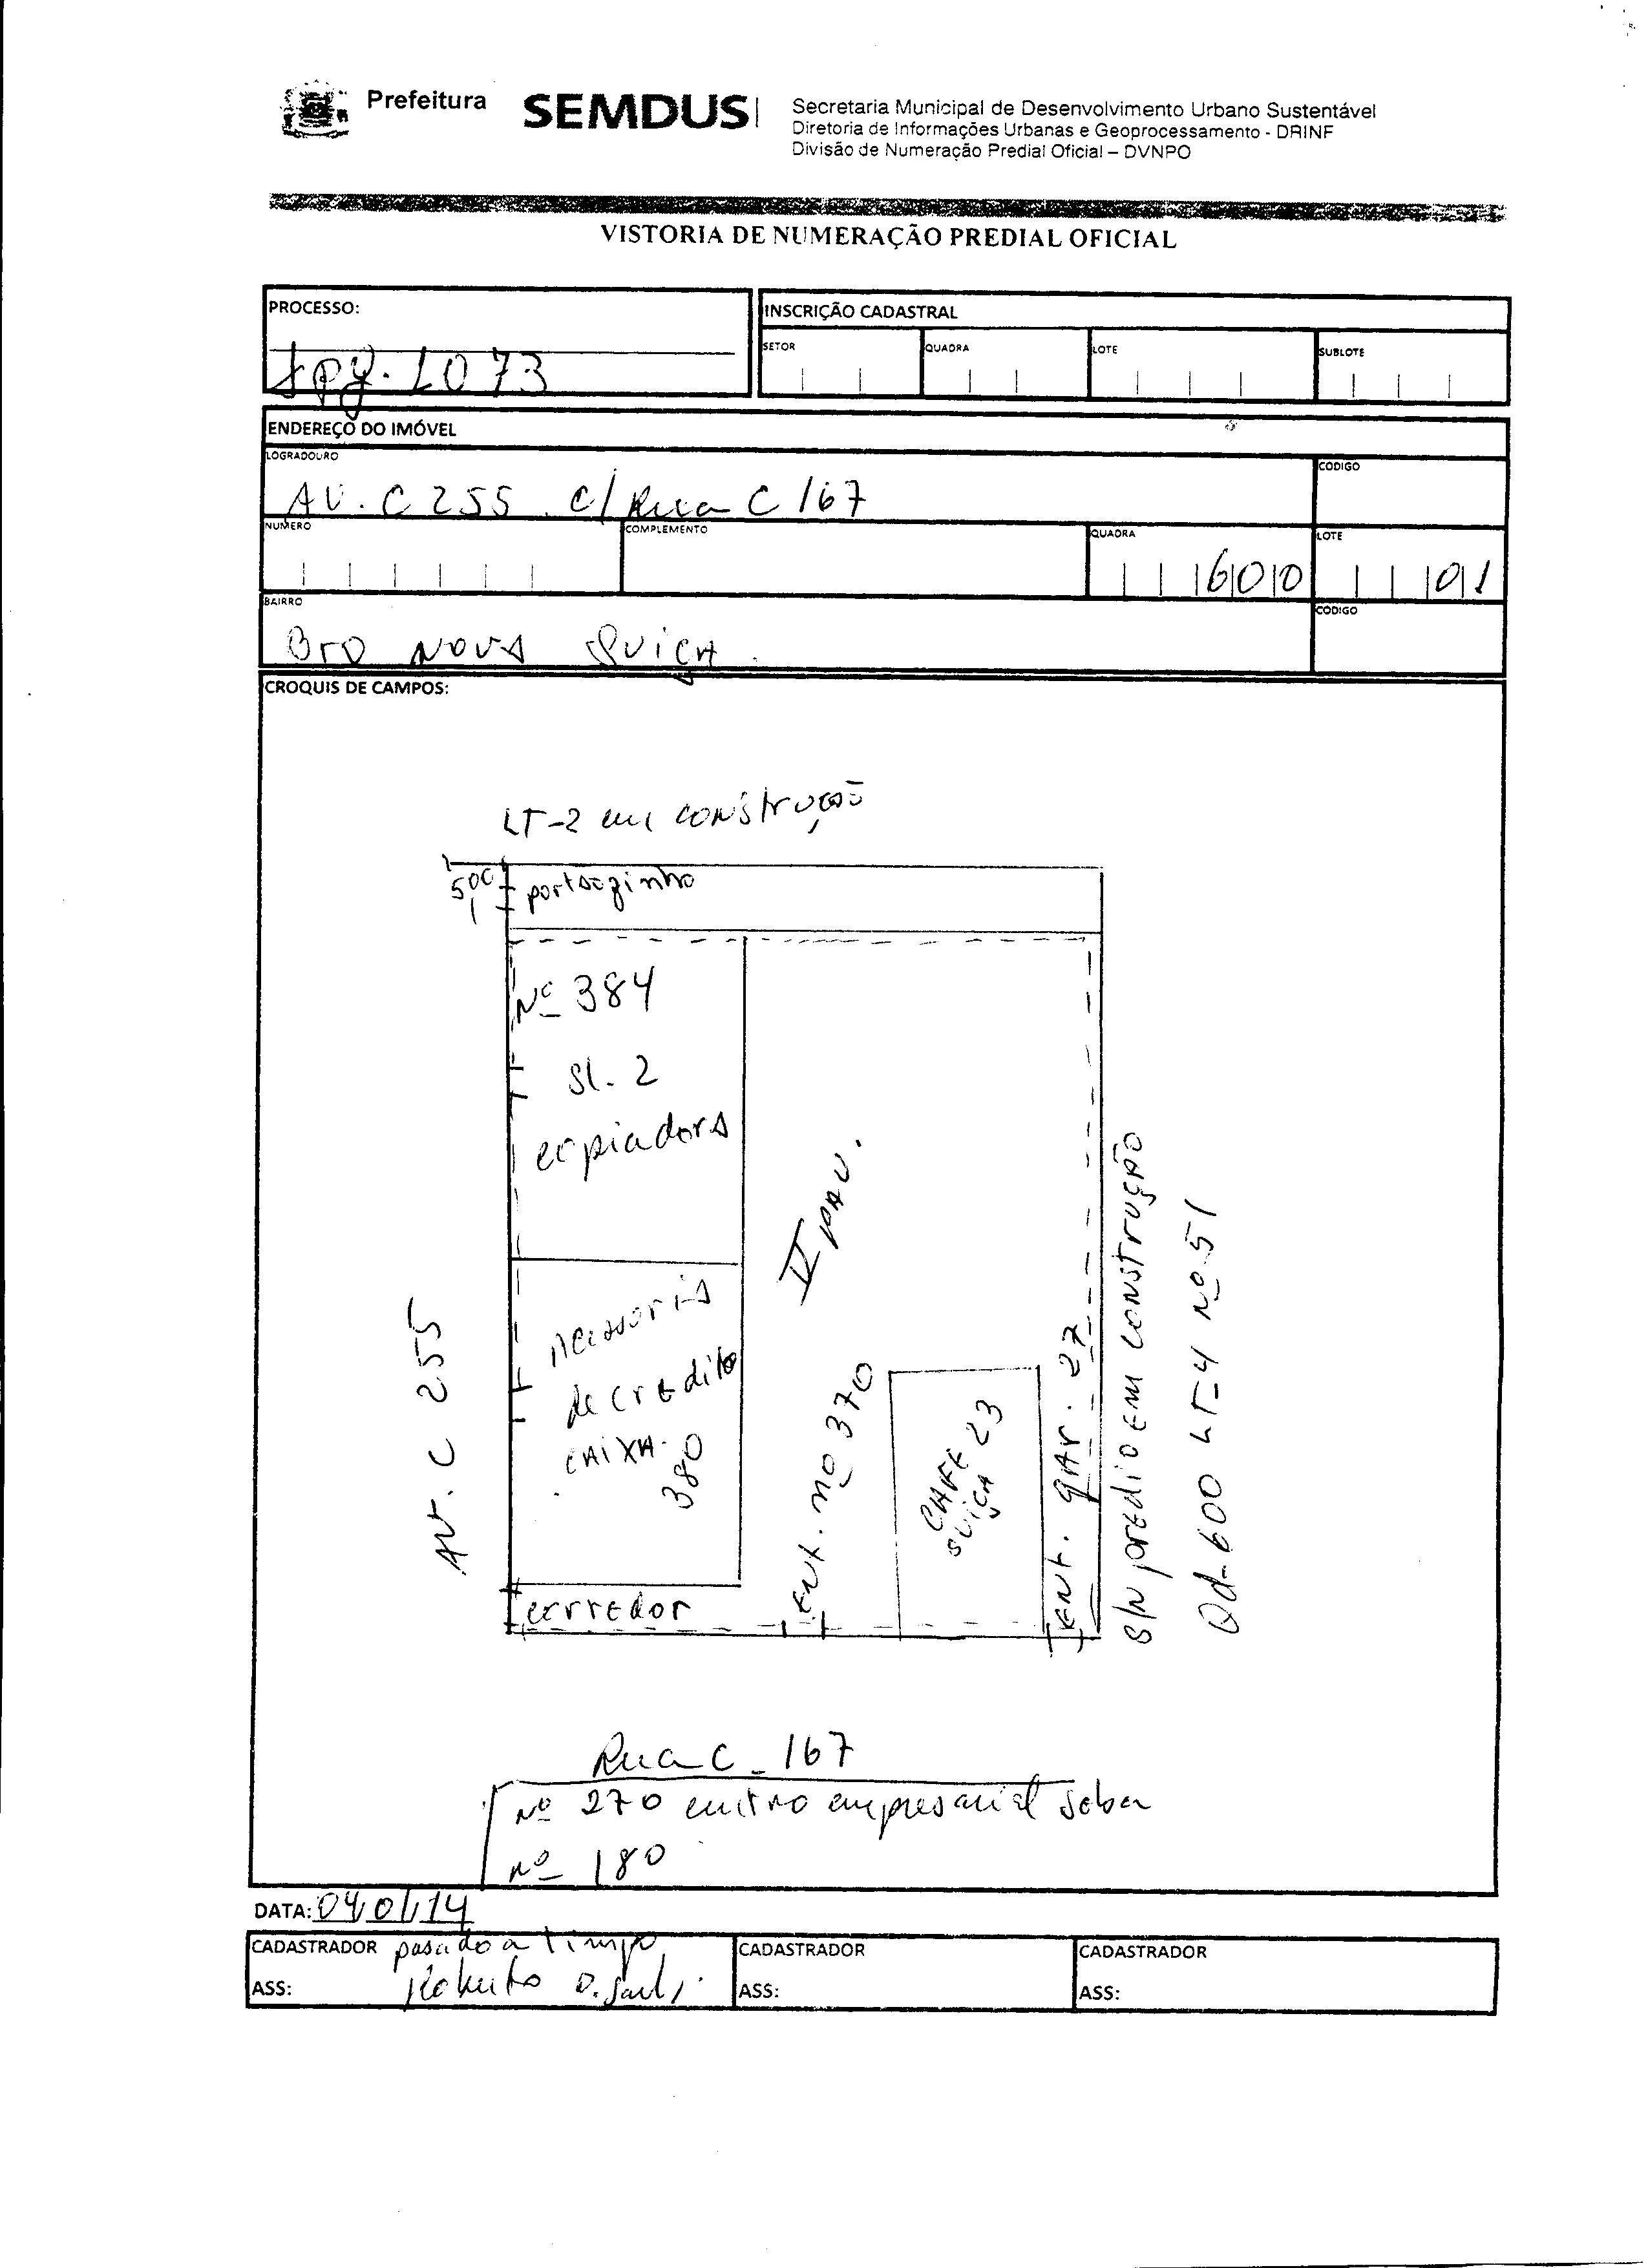 Prefeitura
SEMDUS
Secretaria Municipal de Desenvolvimento Urbano Sustentável
Diretoria de Informações Urbanas e Geoprocessamento - DRINF
Divisão de Numeração Predial Oficial – DVNPO
VISTORIA DE NUMERAÇÃO PREDIAL OFICIAL
PROCESSO:
1073
INSCRIÇÃO CADASTRAL
SETOR
QUADRA
LOTE
SUBLOTE
ENDEREÇO DO IMÓVEL
LOGRADOURO
AV. C 255 c/ Rua C 167
CODIGO
NUMERO
COMPLEMENTO
QUADRA
600
LOTE
01
BAIRRO
Bro NOVA SUIÇA.
CODIGO
CROQUIS DE CAMPOS:
LT-2 em construção
5,00
portãozinho
Nº 384
Sl. 2
copiadora
II PAV.
Acessoria
de credito
CAIXA
380
AV. C 255
Ent. nº 370
CAFE 23
SUIÇA
ENt. gAr. 27
S/N predio EM CONSTRUÇÃO
Qd-600 LT-4 Nº 51
corredor
Rua C-167
Nº 270 centro empresarial Seba
Nº 180
DATA: 04/01/14
CADASTRADOR pasado a limpo
ASS: Roberto D.
CADASTRADOR
ASS:
CADASTRADOR
ASS: